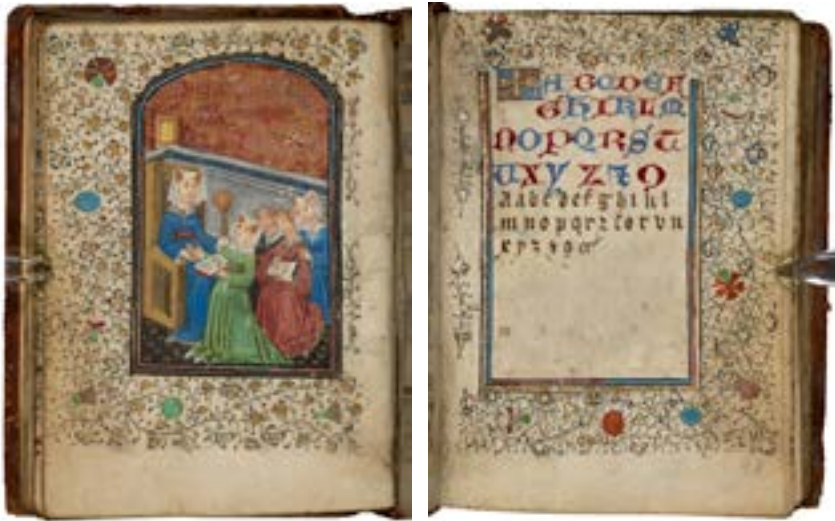 A B C D E F
G H I K L M
N O P Q R S T
U X Y Z ⁊ ꝯ
A a b c d e f g h i k l
m n o p q r ꝛ ſ s t v u
x y z ⁊ ꝯ